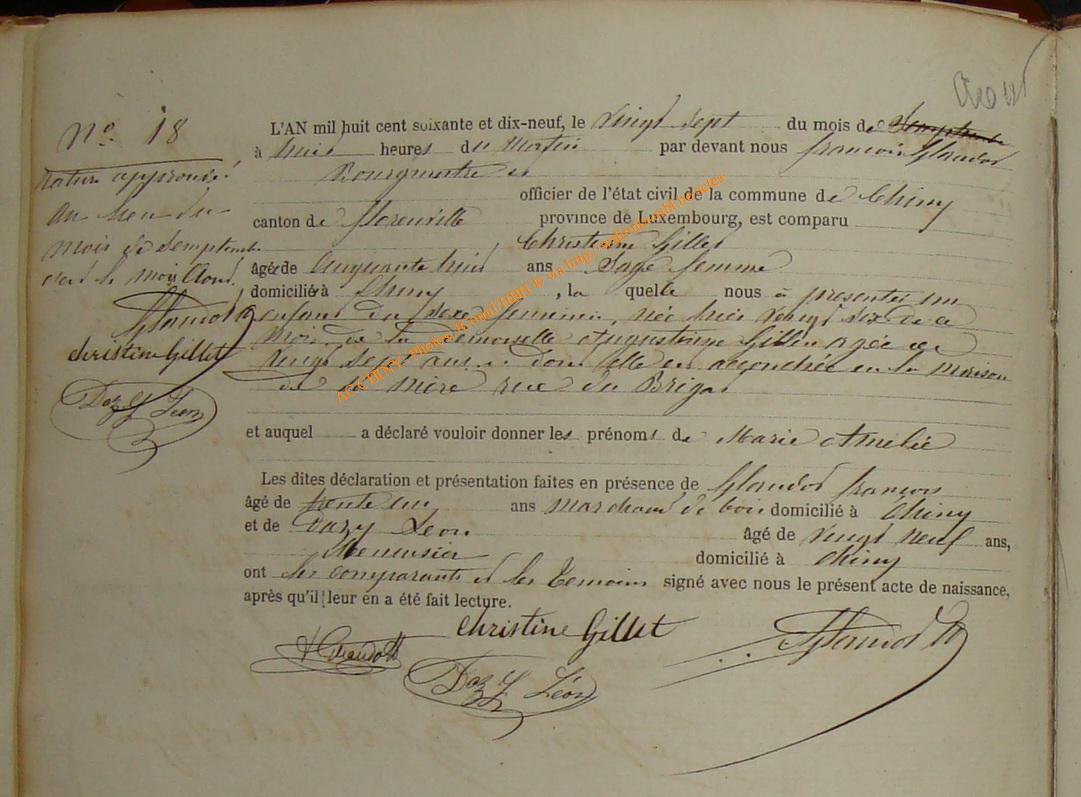 Aout
N° 18
L'AN mil huit cent soixante et dix-neuf, le vingt sept du mois de Semptembre
à huit heures du matin par devant nous françois Glaudot
Bourgmestre et
officier de l'état civil de la commune de Chiny
canton de florenville province de Luxembourg, est comparu
Christenne Gillet
âgée de cinquante huit ans Sage femme
domiciliée à Chiny, la quelle nous à présentée un
enfant du sexe feminin, née hier vingt six de ce
mois, de la Demoiselle Augustinne Gillet agée de
vingt sept ans, dont elle en accouchée en la maison
de sa mère rue du
et auquel a déclaré vouloir donner les prénoms de Marie Amelie
Les dites déclaration et présentation faites en présence de Glaudot françois
âgé de trente un ans marchand de bois domicilié à Chiny
et de Dazy Léon âgé de vingt neuf ans,
Menuisier domicilié à Chiny
ont les comparants et les temoins signé avec nous le présent acte de naissance,
après qu'il leur en a été fait lecture.
Christine Gillet
Glaudot
Dazy Léon
Rature approuvée
au lieu du
mois de Semptembre
c'est le mois Aout.
Glaudot
Christine Gillet
Dazy Léon